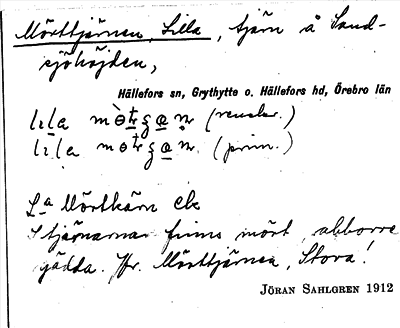 Mörttjärnen, Lilla, tjärn å Sand-
sjöhöjden,
Hällefors sn, Grythytte o. Hällefors hd, Örebro län
(prim.)
L:a Mörtkärn ek
I tjärnarna finns mört, abborre
gädda. Jfr. Mörttjärnen, Stora!
JÖRAN SAHLGREN 1912